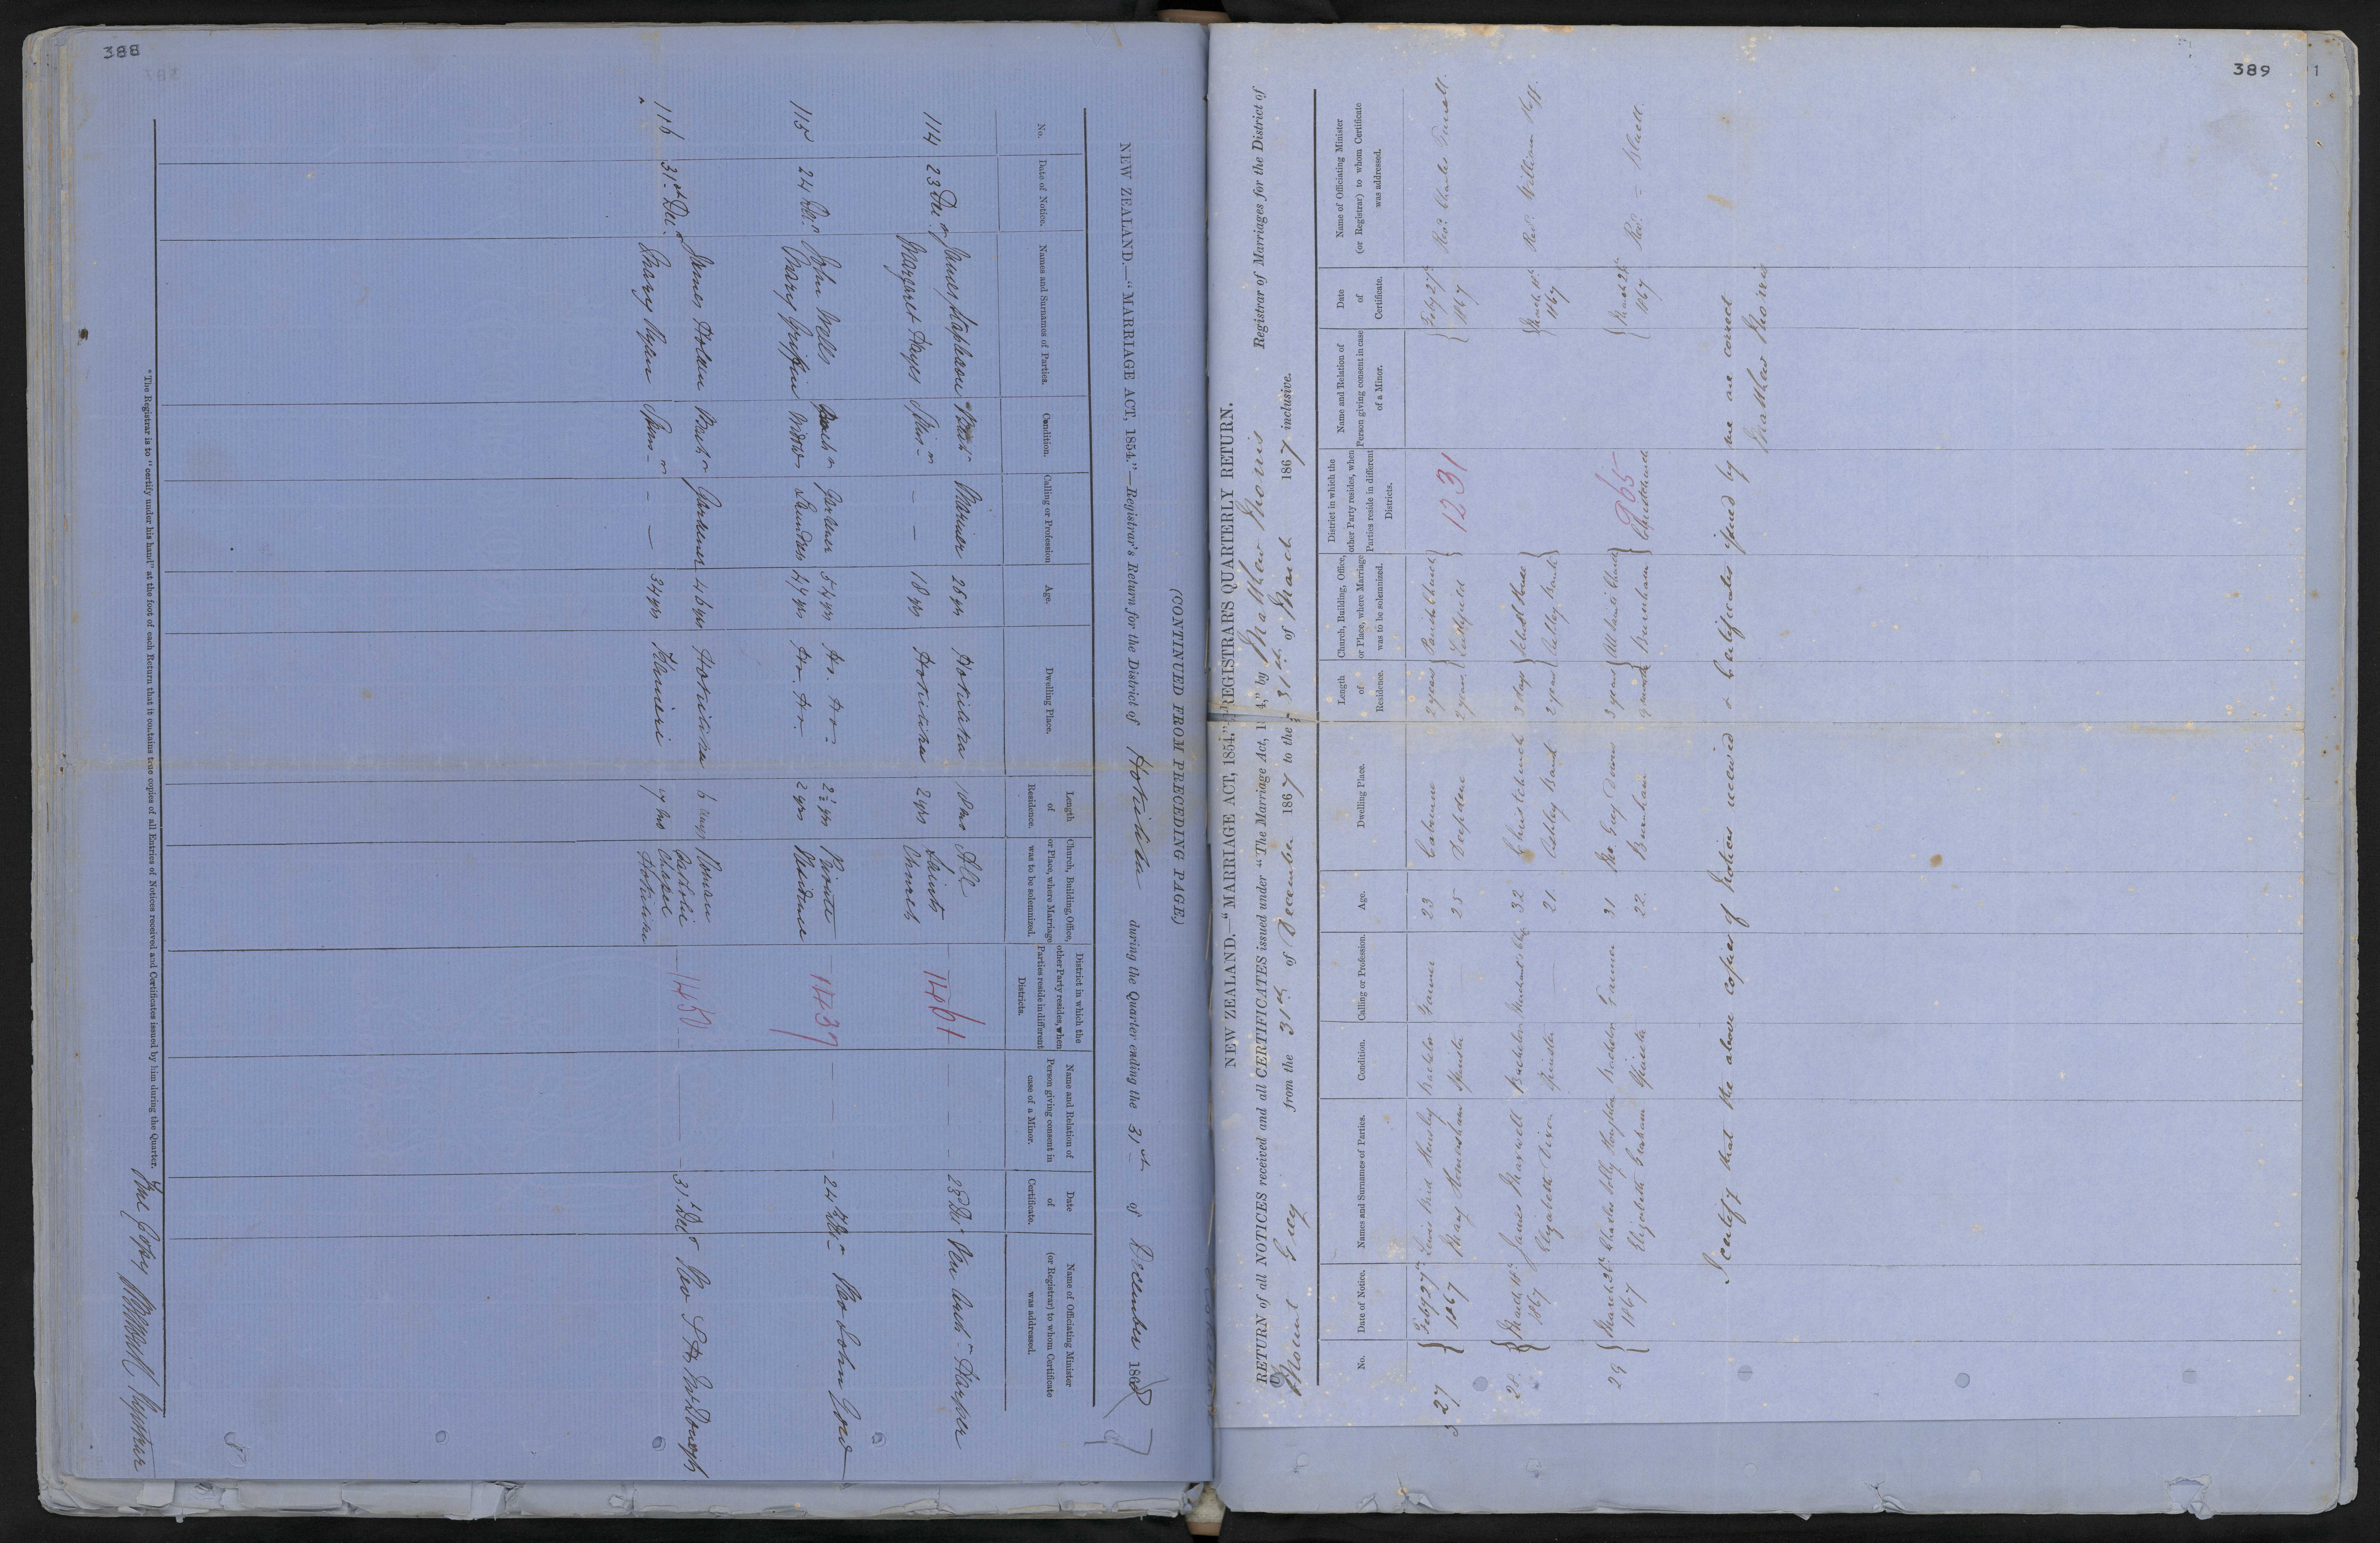 388
(CONTINUED FROM PRECEDING PAGE.)
NEW ZEALAND.—"MARRIAGE ACT, 1854."—Registrar's Return for the District of Hokitika during the Quarter ending the 31st of December 186
No. Date of Notice. Names and Surnames of Parties. Condition. Calling or Profession Age. Dwelling Place. Length of Residence. Church, Building, Office, or Place, where Marriage was to be solemnized. District in which the other Party resides, when Parties reside in different Districts. Name and Relation of Person giving consent in case of a Minor. Date of Certificate. Name of Officiating Minister (or Registrar) to whom Certificate was addressed.
114 23 Decr James Mariner 26 yrs Hokitika All 1461 23 Decr Harper
Margaret Hayes Spinr — — 18 yrs Hokitika 2 yrs Saints Church
115 24 Decr John Wells Bachr Gardener 54 yrs Do. Do. 2½ yrs Private 1437 24 Decr Rev John Gow
Mary Griffin Widow Laundress 47 yrs Do. Do. 2 yrs Residence
116 31st Decr James Holden Bachr Gardener 46 yrs Hokitika 6 days Roman Catholic Chapel Hokitika 1450 31st Decr Rev McDonogh
Mary Ryan Spinr — — 34 yrs Kanieri 7 mo
"The Registrar is to "certify under his hand" at the foot of each Return that it contains true copies of all Entries of Notices received and Certificates issued by him during the Quarter.
True Copy Registrar
389
1
NEW ZEALAND.—"MARRIAGE ACT, 1854."—REGISTRAR'S QUARTERLY RETURN.
RETURN of all NOTICES received and all CERTIFICATES issued under "The Marriage Act, 1854," by Matthew Morris Registrar of Marriages for the District of
Mount Grey from the 31st of December 1867 to the 31st of March 1867 inclusive.
No. Date of Notice. Names and Surnames of Parties. Condition. Calling or Profession. Age. Dwelling Place. Length of Residence. Church, Building, Office, or Place, where Marriage was to be solemnized. District in which the other Party resides, when Parties reside in different Districts. Name and Relation of Person giving consent in case of a Minor. Date of Certificate. Name of Officiating Minister (or Registrar) to whom Certificate was addressed.
27 Feby 27th Lewis Bachelor Farmer 23 2 years Parish Church 1231 Feby 27th Revd Charles
1867 Mary Spinster — 25 2 years Leithfield 1867
28 March 18th James Maxwell Bachelor 32 Christchurch 3 days School House March 18th Revd William
1867 Elizabeth Dixon Spinster — 21 Ashley Bank 2 years Ashley Bank 1867
29 March 26th Charles Bachelor Farmer 31 Mt Grey Downs 3 years All Saints Church 965 March 26th Revd
1867 Elizabeth Graham Spinster 22 Burnham Burnham Christchurch 1867
I certify that the above copies of Notices received & Certificates issued by me are correct
Matthew Morris